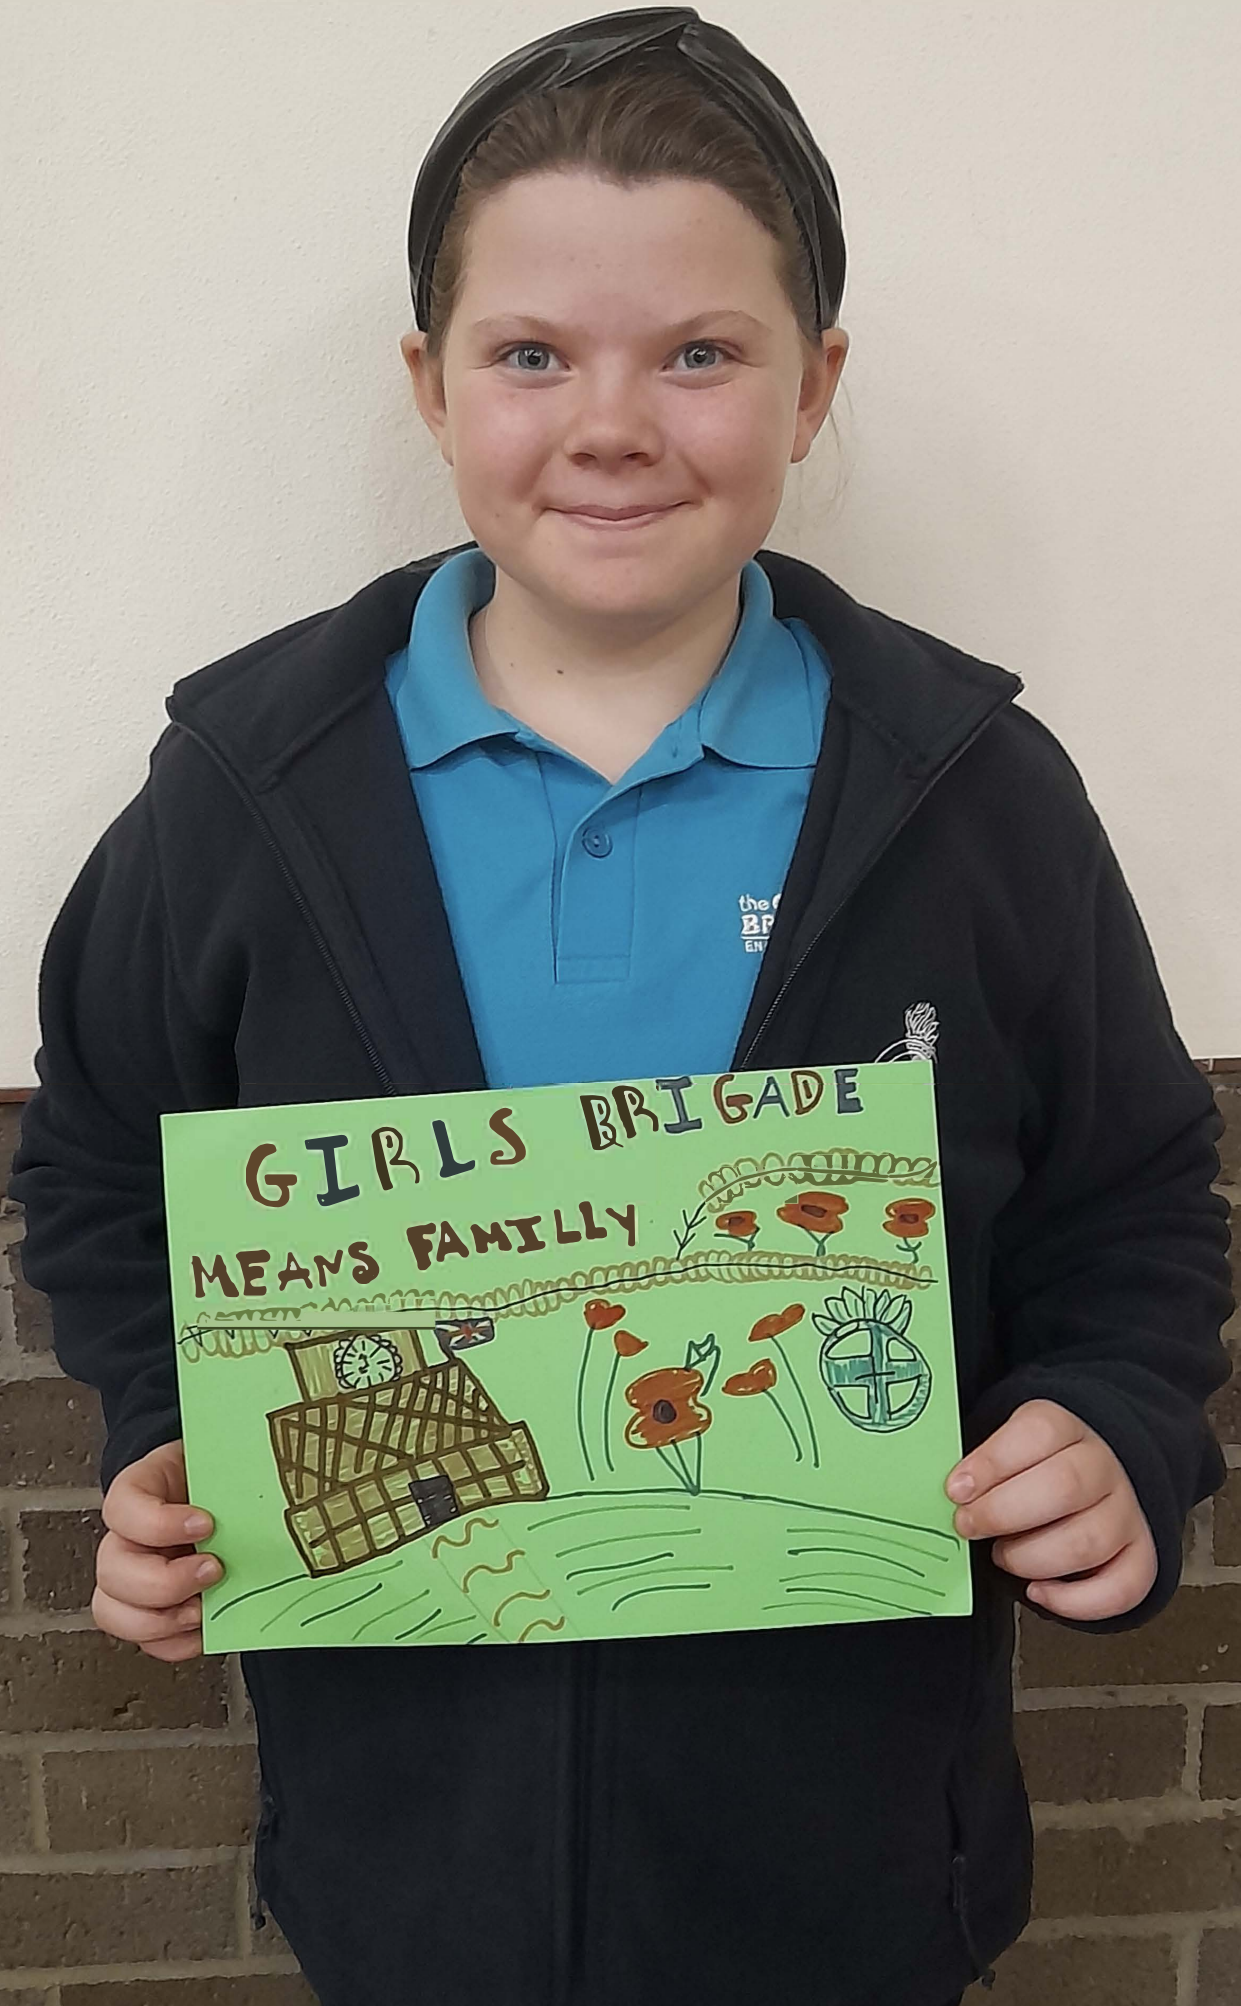 the
GIRLS BRIGADE
MEANS FAMILLY